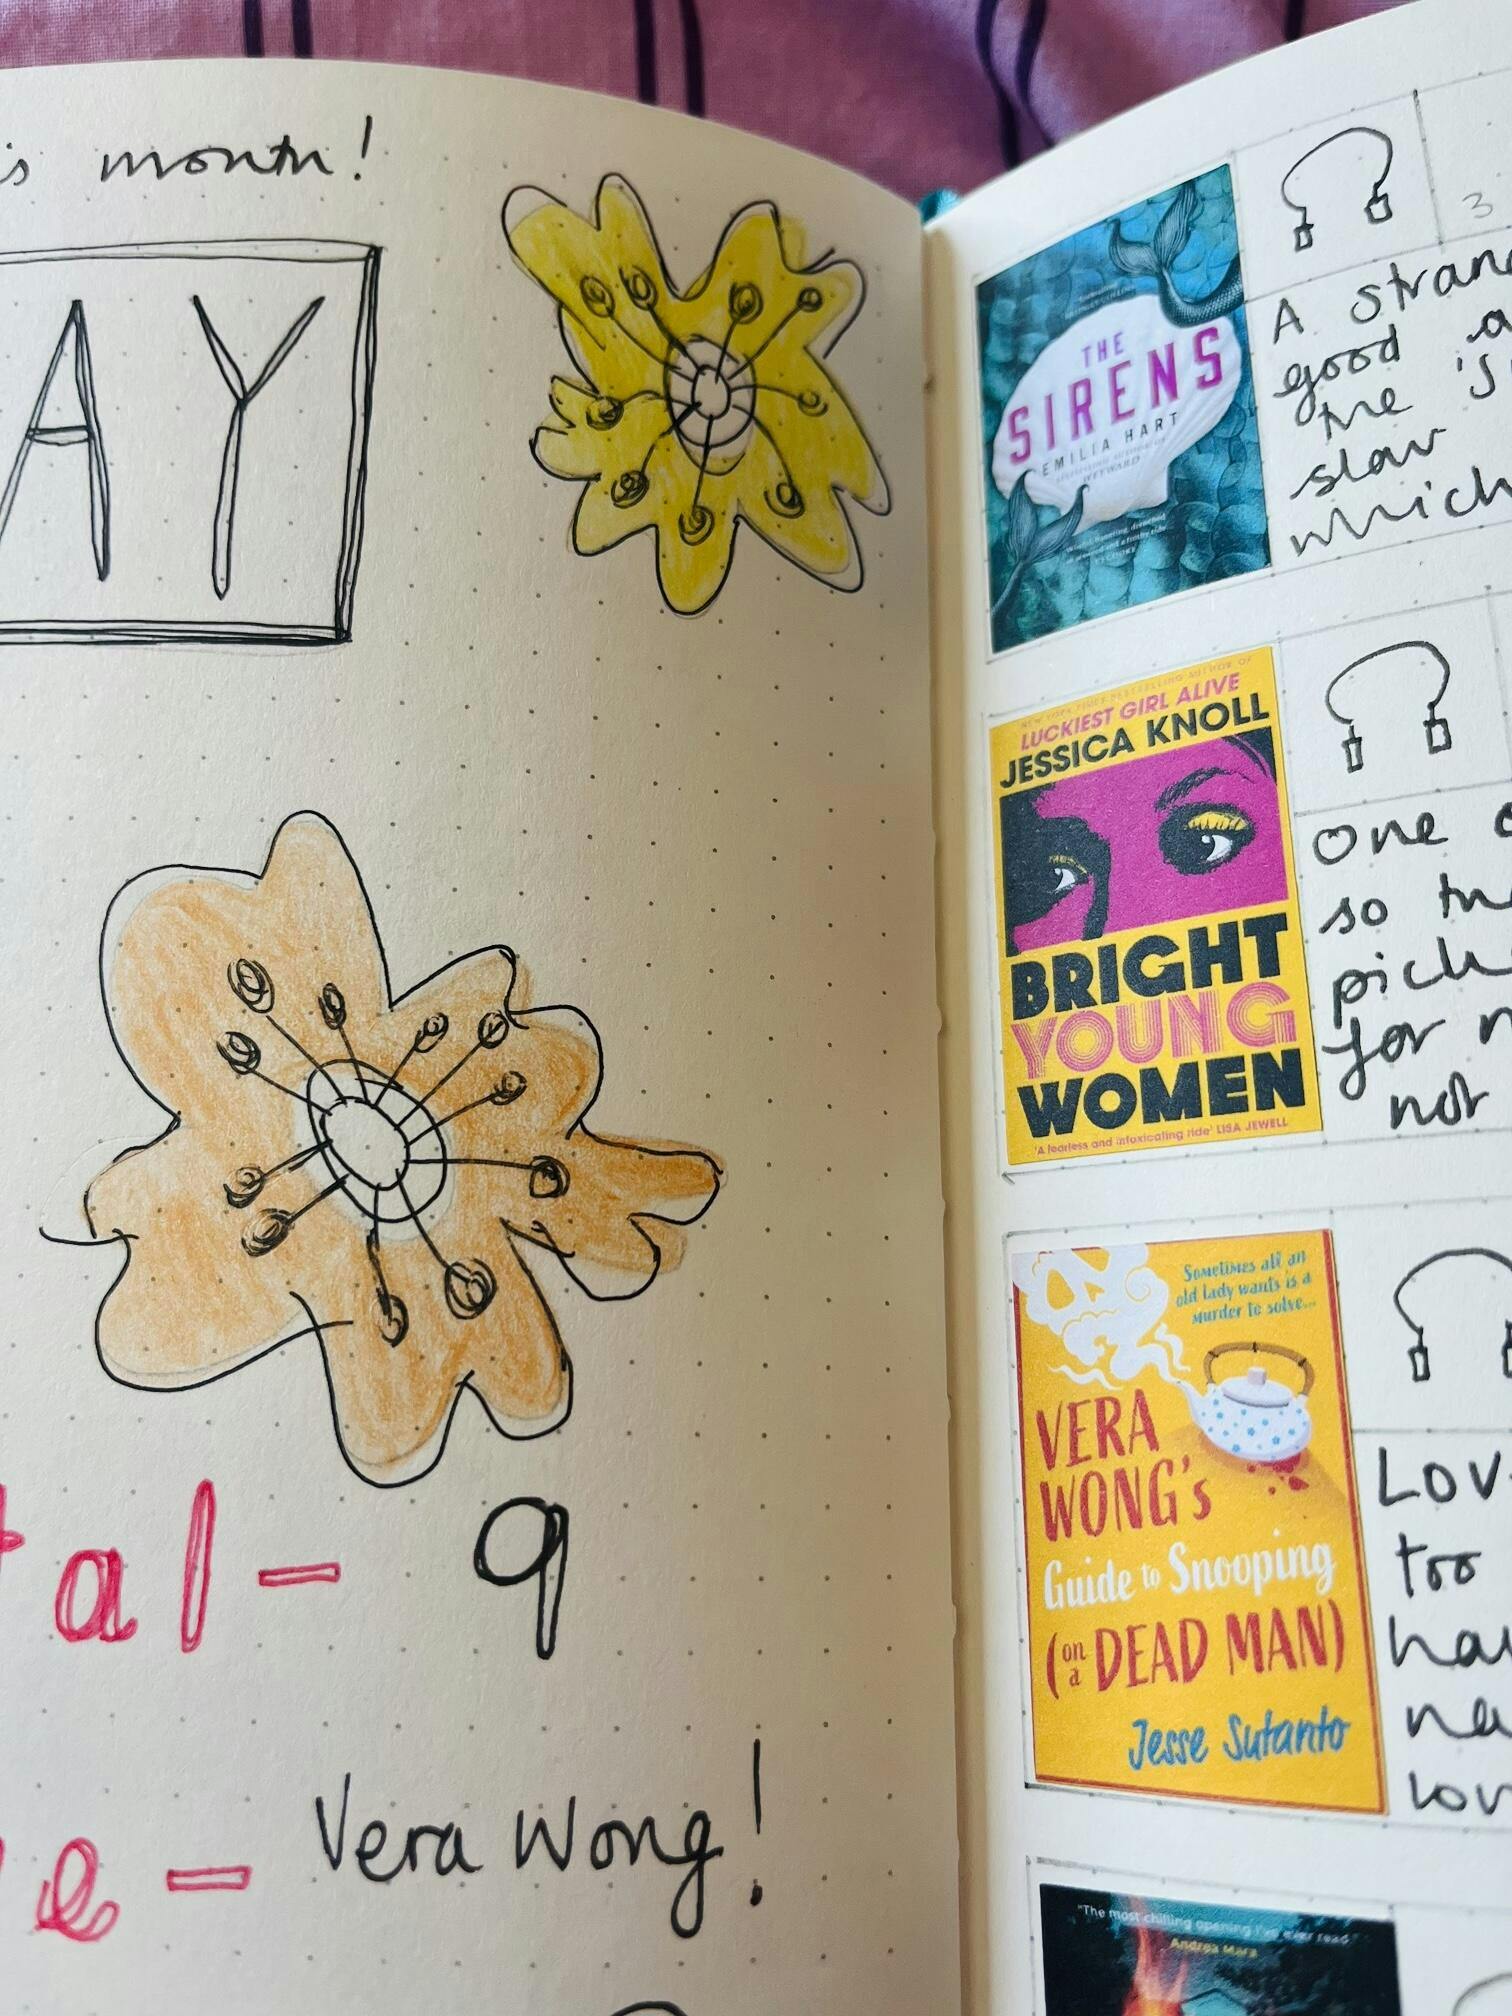 is month!
AY
tal - 9
e - Vera Wong!
THE
SIRENS
EMILIA HART
WEYWARD
3
A strang
good a
the 's
slow
which
NEW YORK TIMES BESTSELLING AUTHOR OF
LUCKIEST GIRL ALIVE
JESSICA KNOLL
BRIGHT
YOUNG
WOMEN
'A fearless and intoxicating ride' LISA JEWELL
One o
so th
pick
for n
not
Sometimes all an
old lady wants is a
murder to solve...
VERA
WONG's
Guide to Snooping
(on a DEAD MAN)
Jesse Sutanto
Lov
too
ha
ne
lov
"The most chilling opening I've ever read"
Andrea Mara